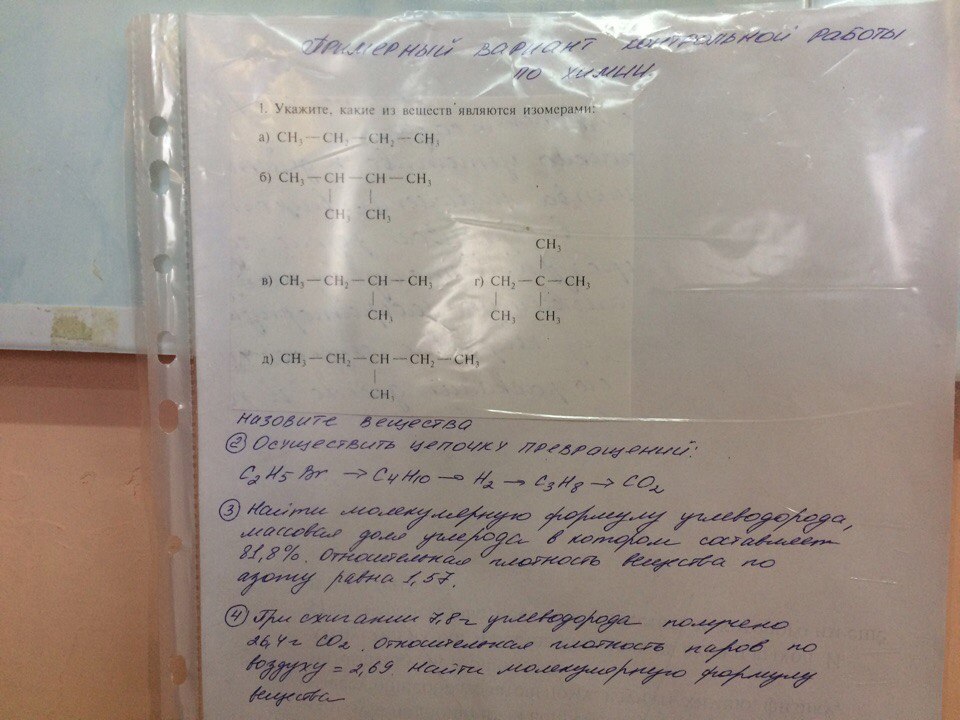 Примерный вариант контрольной работы
по химии.
1. Укажите, какие из веществ являются изомерами:
а) CH₃—CH₂—CH₂—CH₃
б) CH₃—CH—CH—CH₃
| |
CH₃ CH₃
CH₃
|
в) CH₃—CH₂—CH—CH₃ г) CH₂—C—CH₃
| | |
CH₃ CH₃ CH₃
д) CH₃—CH₂—CH—CH₂—CH₃
|
CH₃
Назовите вещества
② Осуществить цепочку превращений:
C₂H₅Br → C₄H₁₀ → H₂ → C₃H₈ → CO₂
③ Найти молекулярную формулу углеводорода,
массовая доля углерода в котором составляет
81,8%. Относительная плотность вещества по
азоту равна 1,57.
④ При сжигании 7,8 г углеводорода получено
26,4 г CO₂. Относительная плотность паров по
воздуху = 2,69. Найти молекулярную формулу
вещества